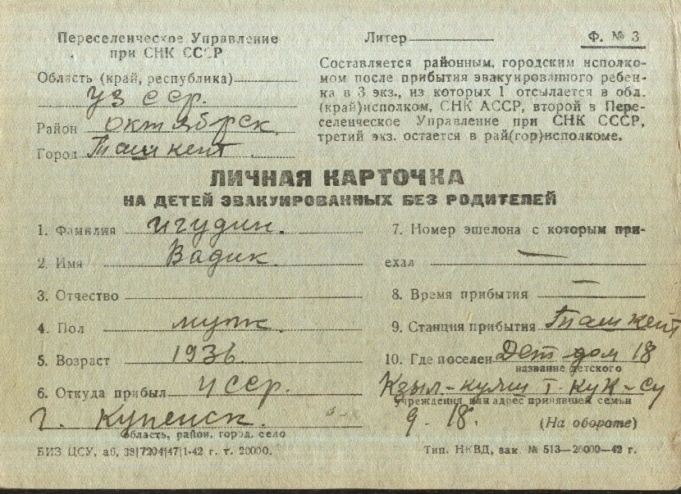 Переселенческое Управление
при СНК СССР
Область (край, республика)
УЗ ССР.
Район октябрск.
Город Ташкент
Литер
Ф. № 3
Составляется районным, городским исполко-
мом после прибытия эвакуированного ребен-
ка в 3 экз., из которых 1 отсылается в обл.
(край)исполком, СНК АССР, второй в Пере-
селенческое Управление при СНК СССР,
третий экз. остается в рай(гор)исполкоме.
ЛИЧНАЯ КАРТОЧКА
НА ДЕТЕЙ ЭВАКУИРОВАННЫХ БЕЗ РОДИТЕЛЕЙ
1. Фамилия Игудин.
2. Имя Вадик.
3. Отчество
4. Пол мужск
5. Возраст 1936
6. Откуда прибыл УССР.
г. Купенск.
область, район, город, село
7. Номер эшелона с которым при-
ехал —
8. Время прибытия —
9. Станция прибытия Ташкент
10. Где поселен Дет дом 18
название детского
учреждения, или адрес принявшей семьи
18.
(На обороте)
БИЗ ЦСУ, аб, 38|7204|47|1-42 г. т. 20000.
Тип. НКВД, зак. № 513—26000—42 г.